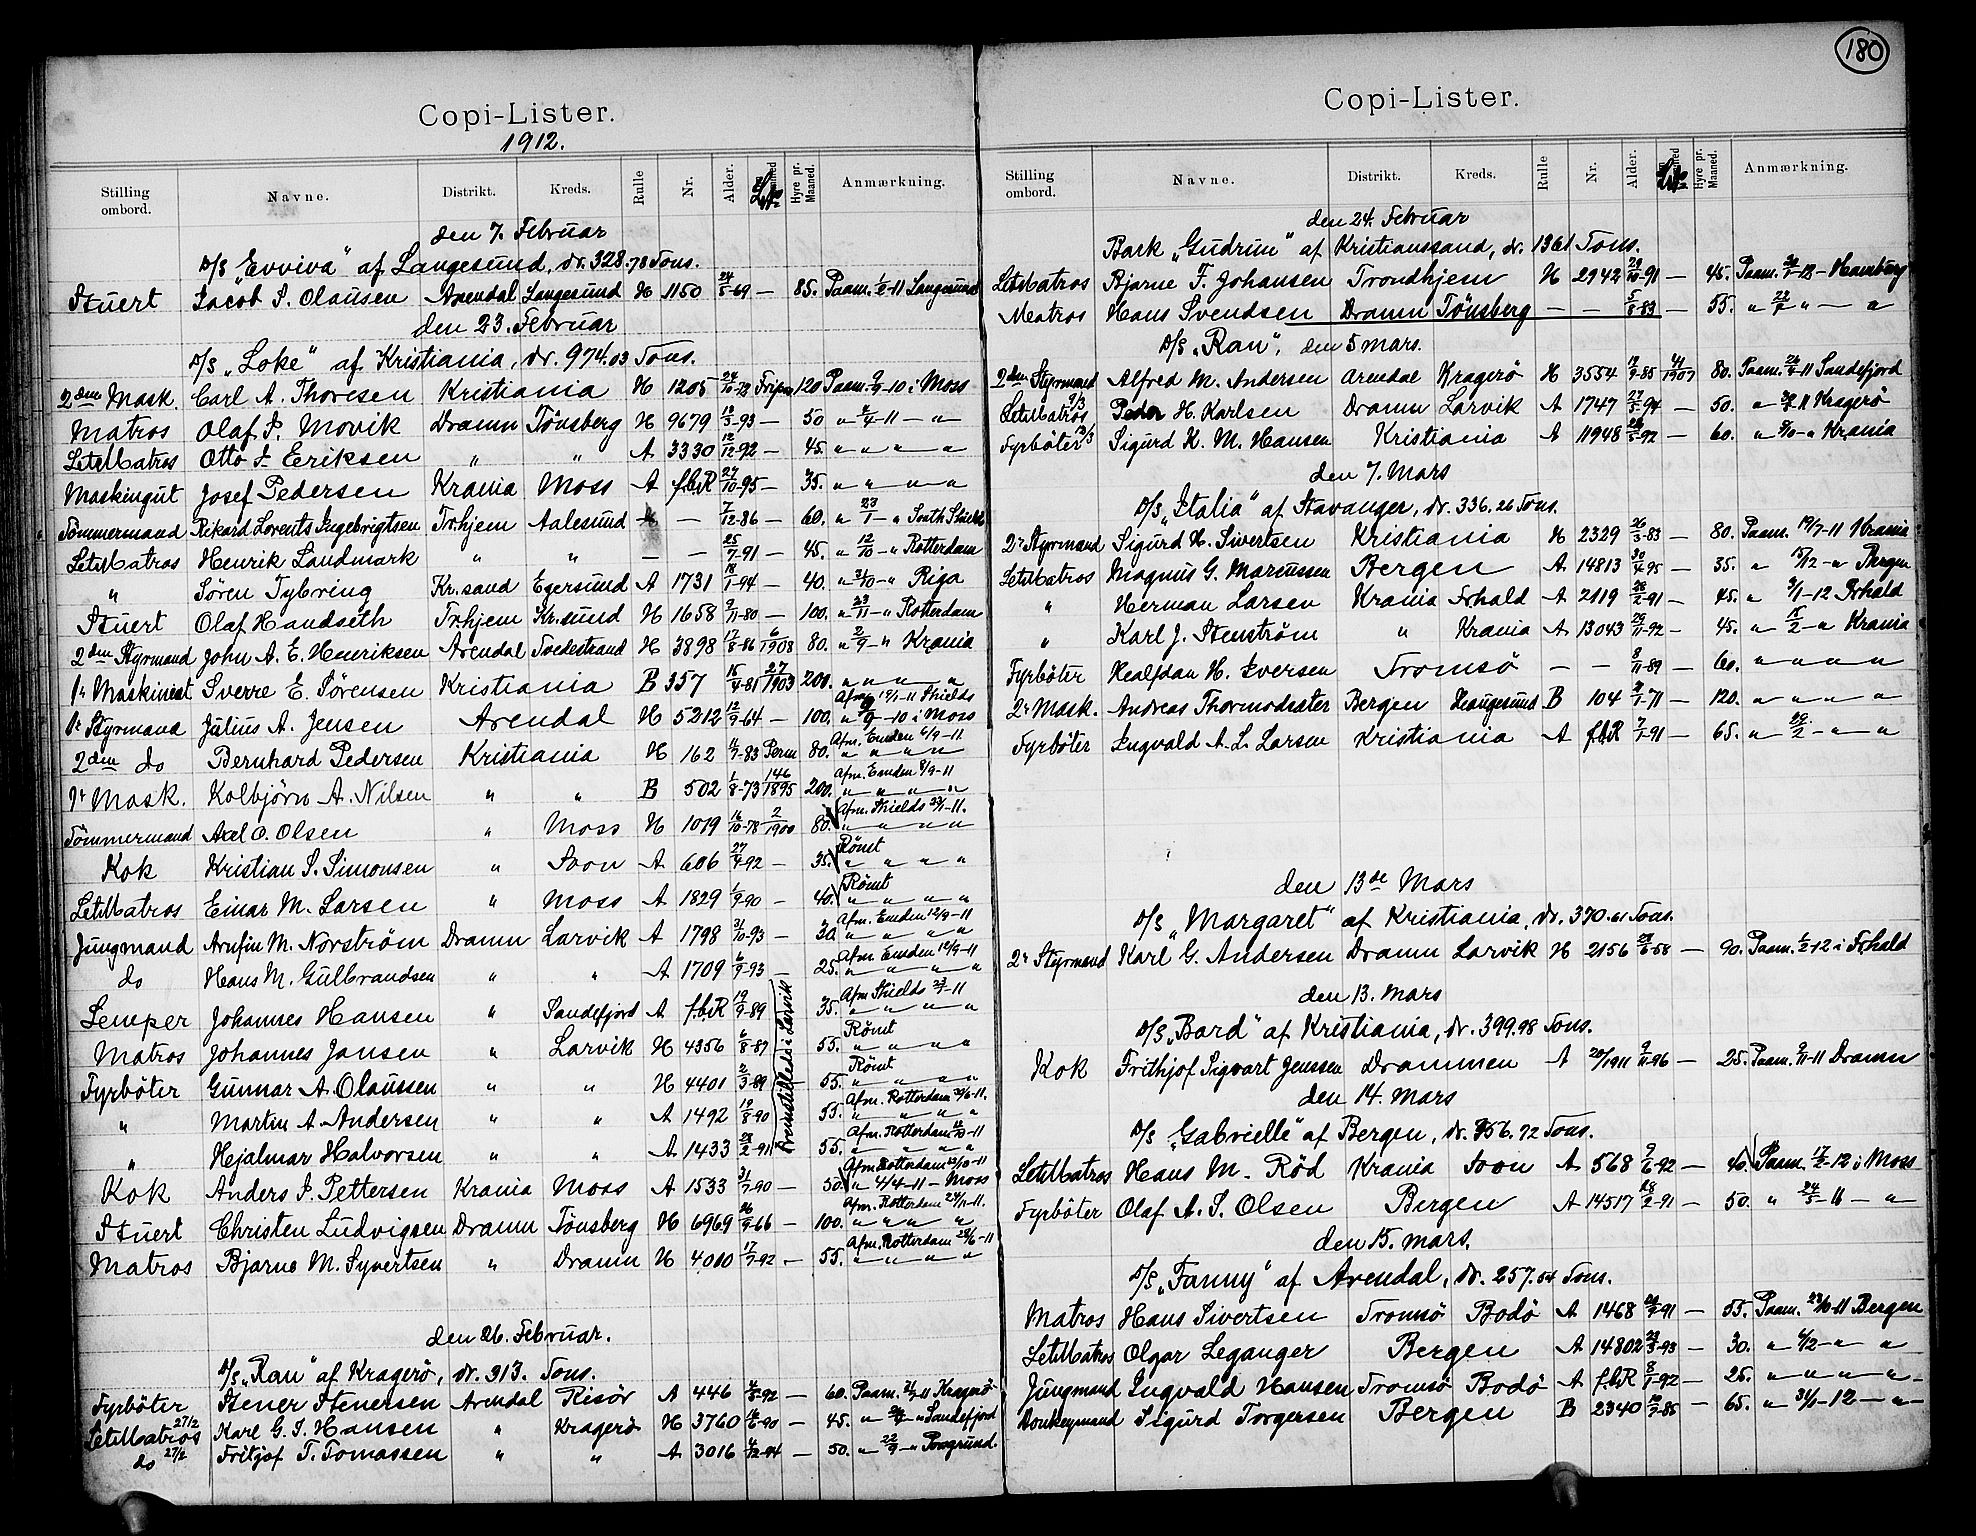 Copi-Lister.
1912.
Stilling ombord. Navne. Distrikt. Kreds. Rulle Nr. Alder. Hyre pr. Maaned. Anmærkning.
den 7. Februar
D/S „Evviva" af Langesund, dr. 328.78 Tons.
Stuert Jacob P. Olausen Arendal Langesund H 1150 24/5-69 — 85. Paam. Langesund
den 23. Februar
D/S „Loke" af Kristiania, dr. 974.03 Tons.
2den Mask. Carl A. Thoresen Kristiania H 1205 120 Paam. i Moss
Matros Olaf P. Movik Dramn Tönsberg H 9679 -93 — 50 " -11 — "
LetMatros Otto J. Eeriksen " " A 3330 12/12-92 — 45. " " — "
Maskingut Josef Pedersen Krania Moss A f.b.R 27/10-95 — 35. " " — "
Tömmermand Rikard Lorents Ingebrigtsen Tr.hjem Aalesund — 7/12-86 — 60. " 23/1 — " South Shields
LetMatros Henrik Landmark " " — — 25/7-91 — 45. " 12/10 — " Rotterdam
" Sören Tybring Kr.sand Egersund A 1731 18/1-94 — 40. " — " Riga
Stuert Olaf Handseth Tr.hjem Kr.sund H 1658 9/11-80 — 100. " 23/11 — " Rotterdam
2den Styrmand John A. E. Henriksen Arendal Tvedestrand H 3898 17/8-86 6/1908 80. " 2/9 — " Krania
1r Maskinist Sverre E. Sörensen Kristiania B 357 15/4-81 27/1903 200. " " — "
1r Styrmand Julius A. Jensen Arendal H 5212 12/9-64 — 100. Afm. Shields " -10 i Moss
2den do Bernhard Pedersen Kristiania H 162 -83 80. Afm. Emden 6/9-11. " " — "
1r Mask. Kolbjörn A. Nilsen " " B 502 1/8-73 146/1895 200. Afm. Emden 8/9-11 " " — "
Tömmermand Axel O. Olsen " Moss H 1019 16/10-78 2/1900 80. Afm. Shields -11. " " — "
Kok Kristian S. Simonsen " Soon A 606 27/4-92 — 35. Römt " " — "
LetMatros Einar M. Larsen " Moss A 1829 1/9-90 — 40. Römt " " — "
Jungmand Arnfin M. Norström Dramn Larvik A 1798 31/10-93 — 30. Afm. Emden 12/9-11 " " — "
do Hans M. Gulbrandsen " " A 1709 6/9-93 — 25. Afm. Emden 12/9-11 " " — "
Lemper Johannes Hansen " Sandefjord A f.b.R 19/9-89 35. Afm. Shields -11 " " — "
Matros Johannes Jansen " Larvik H 4356 6/8-87 55. Römt " " — "
Fyrböter Gunnar A. Olaussen " " H 4401 2/3-89 — 55. Römt " " — "
" Martin A. Andersen " " A 1492 19/8-90 55. Afm. Rotterdam -11. " " — "
" Hejalmar Halvorsen " " A 1433 28/2-91 55. Afm. Rotterdam -11 " " — "
Fremstilledes i Larvik
Kok Anders P. Pettersen Krania Moss A 1533 31/7-90 — 50. Afm. Rotterdam -11 " 4/4-11 — Moss
Stuert Christen Ludvigsen Dramn Tönsberg H 6969 26/9-66 — 100. Afm. Rotterdam -11. " " — "
Matros Bjarne M. Syvertsen " Dramn H 4080 17/7-92 — 55. Afm. Rotterdam -11 " " — "
den 26. Februar.
D/S „Ran" af Kragerö, dr. 313. Tons.
Fyrböter Stener Stenersen Arendal Risör A 446 -92 — 60. Paam. Kragerö
LetMatros 27/2 Karl G. S. Hansen " Kragerö H 3760 -90 — 45. " " Sandefjord
do 27/2 Fritjof T. Tomassen " " A 3016 -94 — 50. " 22/9 — " Porsgrund.
180
Copi-Lister.
Stilling ombord. Navne. Distrikt. Kreds. Rulle Nr. Alder. Hyre pr. Maaned. Anmærkning.
den 24. Februar
Bark „Gudrun" af Kristianssand, dr. 1361 Tons.
LetMatros Bjarne F. Johansen Trondhjem H 2942 29/10-91 — 45. Paam. -12 — Hamburg
Matros Hans Svendsen Dramn Tönsberg — — 5/8-83 — 55. " " — "
D/S „Ran", den 5 mars.
2den Styrmand Alfred M. Andersen Arendal Kragerö H 3554 19/9-85 41/1907 80. Paam. -11 Sandefjord
LetMatros 9/3 Peder H. Karlsen Dramn Larvik A 1747 27/5-94 — 50. " -11 Kragerö
Fyrböter 12/3 Sigurd K. M. Hansen Kristiania A 11948 -92 — 60. " — " Krania
den 7. Mars
D/S „Italia" af Stavanger, dr. 336.26 Tons.
2r Styrmand Sigurd H. Sivertsen Kristiania H 2329 26/3-83 — 80. Paam. 19/7-11 Krania
LetMatros Magnus G. Marcussen Bergen A 14813 30/4-95 — 35. " 15/12 — " Bergen
" Herman Larsen Krania Fr.hald A 2119 28/2-91 — 45. " 3/1-12 Fr.hald
" Karl J. Stenström " Krania A 13043 -92 — 45. " 15/2 — " Krania
Fyrböter Healfdan H. Iversen Tromsö — — 8/11-89 — 60. " " — "
2r Mask. Andreas Thormodsæter Bergen Heaugesund B 104 -71 — 120. " " — "
Fyrböter Ingvald A. L. Larsen Kristiania A f.b.R 7/1-91 — 65. " — "
den 13de Mars
D/S „Margaret" af Kristiania, dr. 370.61 Tons.
2r Styrmand Karl G. Andersen Dramn Larvik H 2156 -58 — 90. Paam. 1/2-12 i Fr.hald
den 13. Mars
D/S „Bard" af Kristiania, dr. 399.98 Tons.
Kok Frithjof Sigvart Jenssen Drammen A 20/1911 9/11-96 — 25. Paam. 9/11-11 Dramn
den 14. Mars
D/S „Gabrielle" af Bergen, dr. 756.72 Tons.
LetMatros Hans M. Röd Krania Soon A 568 9/6-92 — 40. Paam. 17/2-12 i Moss
Fyrböter Olaf A. S. Olsen Bergen A 14517 28/2-91 50. " 24/5-11 — "
den 15. mars.
D/S „Fanny" af Arendal, dr. 257.54 Tons.
Matros Hans Sivertsen Tromsö Bodö A 1468 -91 — 55. Paam. -11 Bergen
LetMatros Olgar Leganger Bergen A 14802 -93 — 30. " — "
Jungmand Ingvald Hansen Tromsö Bodö A f.b.R 8/1-92 — 25. " " — "
Donkeymand Sigurd Torgersen Bergen B 2340 -85 — 65. " 31/1-12 — "